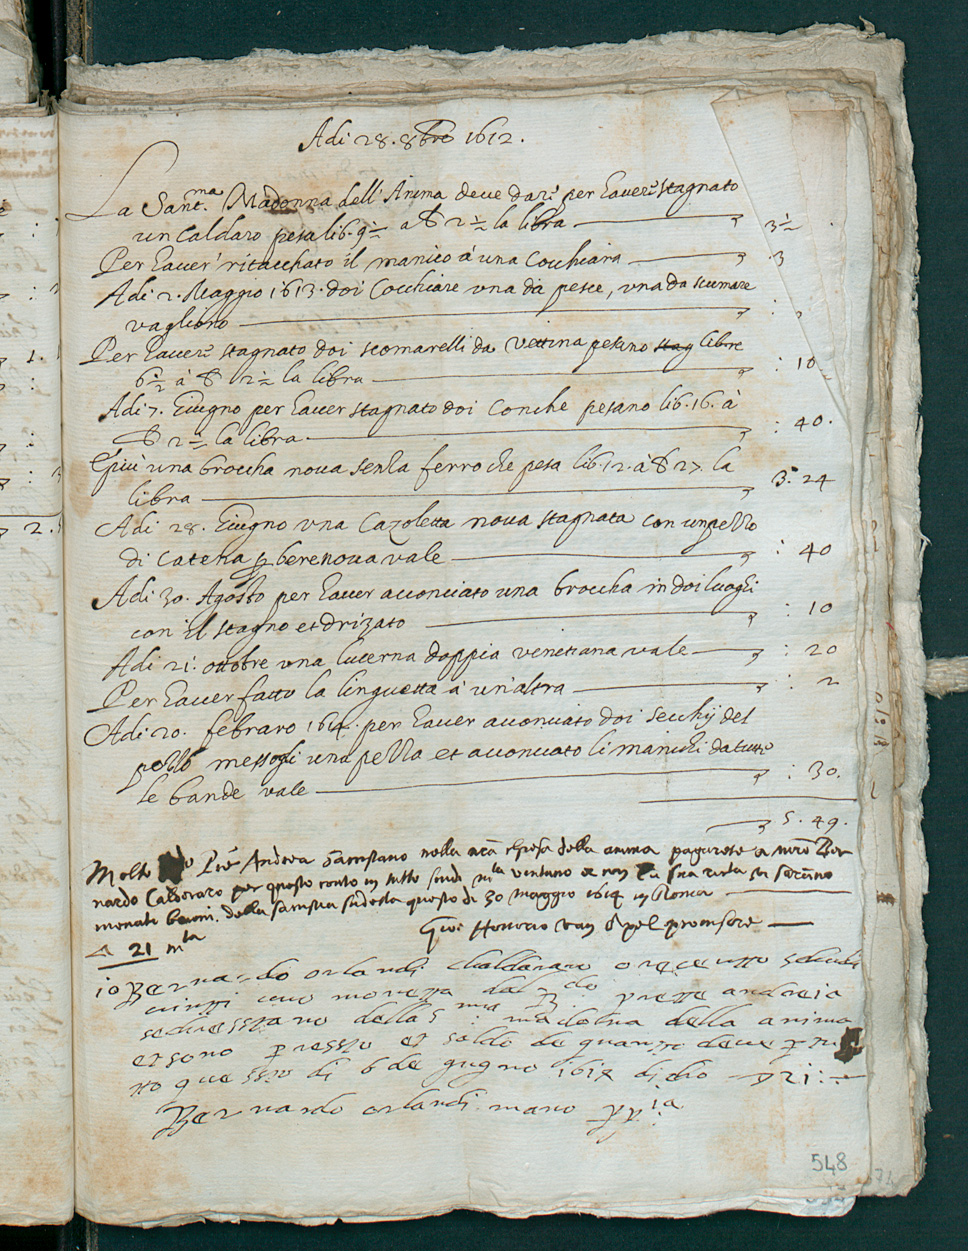 Adi 28. 8bre 1612.
La Sant.ma Madonna dell'Anima deve dare per haver stagnato
un Caldaro pesa lib. 9½ a b 2½ la libra 3½
Per haver' ritacchato il manico à una Cocchiara 3
Adi 2. Maggio 1613. doi Cocchiare una da pesce, una da scumare
vagliono
Per haver stagnato doi scomarelli da vettina pesano stag libre
6½ à b 12½ la libra : 10
Adi 7. Giugno per haver stagnato doi Conche pesano lib. 16. à
b 2½ la libra : 40.
Più una broccha nova senza ferro che pesa lib. 12. à b 27 la
libra 3. 24
Adi 28. Giugno una Cazoletta nova stagnata con un pezzo
di catena nova vale : 40
Adi 30. Agosto per haver acconciato una broccha in doi luoghi
con il stagno et drizato : 10
Adi 21. ottobre una lucerna doppia venetiana vale : 20
Per haver fatto la linguetta à un'altra : 2
Adi 20. febraro 1614. per haver acconciato doi secchij del
pozzo messogli una pezza et acconciato li manichi da tutte
le bande vale : 30.
5. 49.
Molto Andrea nella spesa della anima pagarete a Ber
nardo Calderaro per questo conto in tutto scudi m.ta ventuno
della questo di 30 maggio 1614 in Roma
21 m.ta
Gio: Honorio van provisore
io Bernardo orlandi Chaldararo o receuto schudi
vinti uno moneta dal prette andreia
della S.ma madonna della anima
et sono per resto et saldo de quanto deve per tu
tto questo di 6 de gugno 1614 dicho 21:
Bernardo orlandi mano pp.ia
548